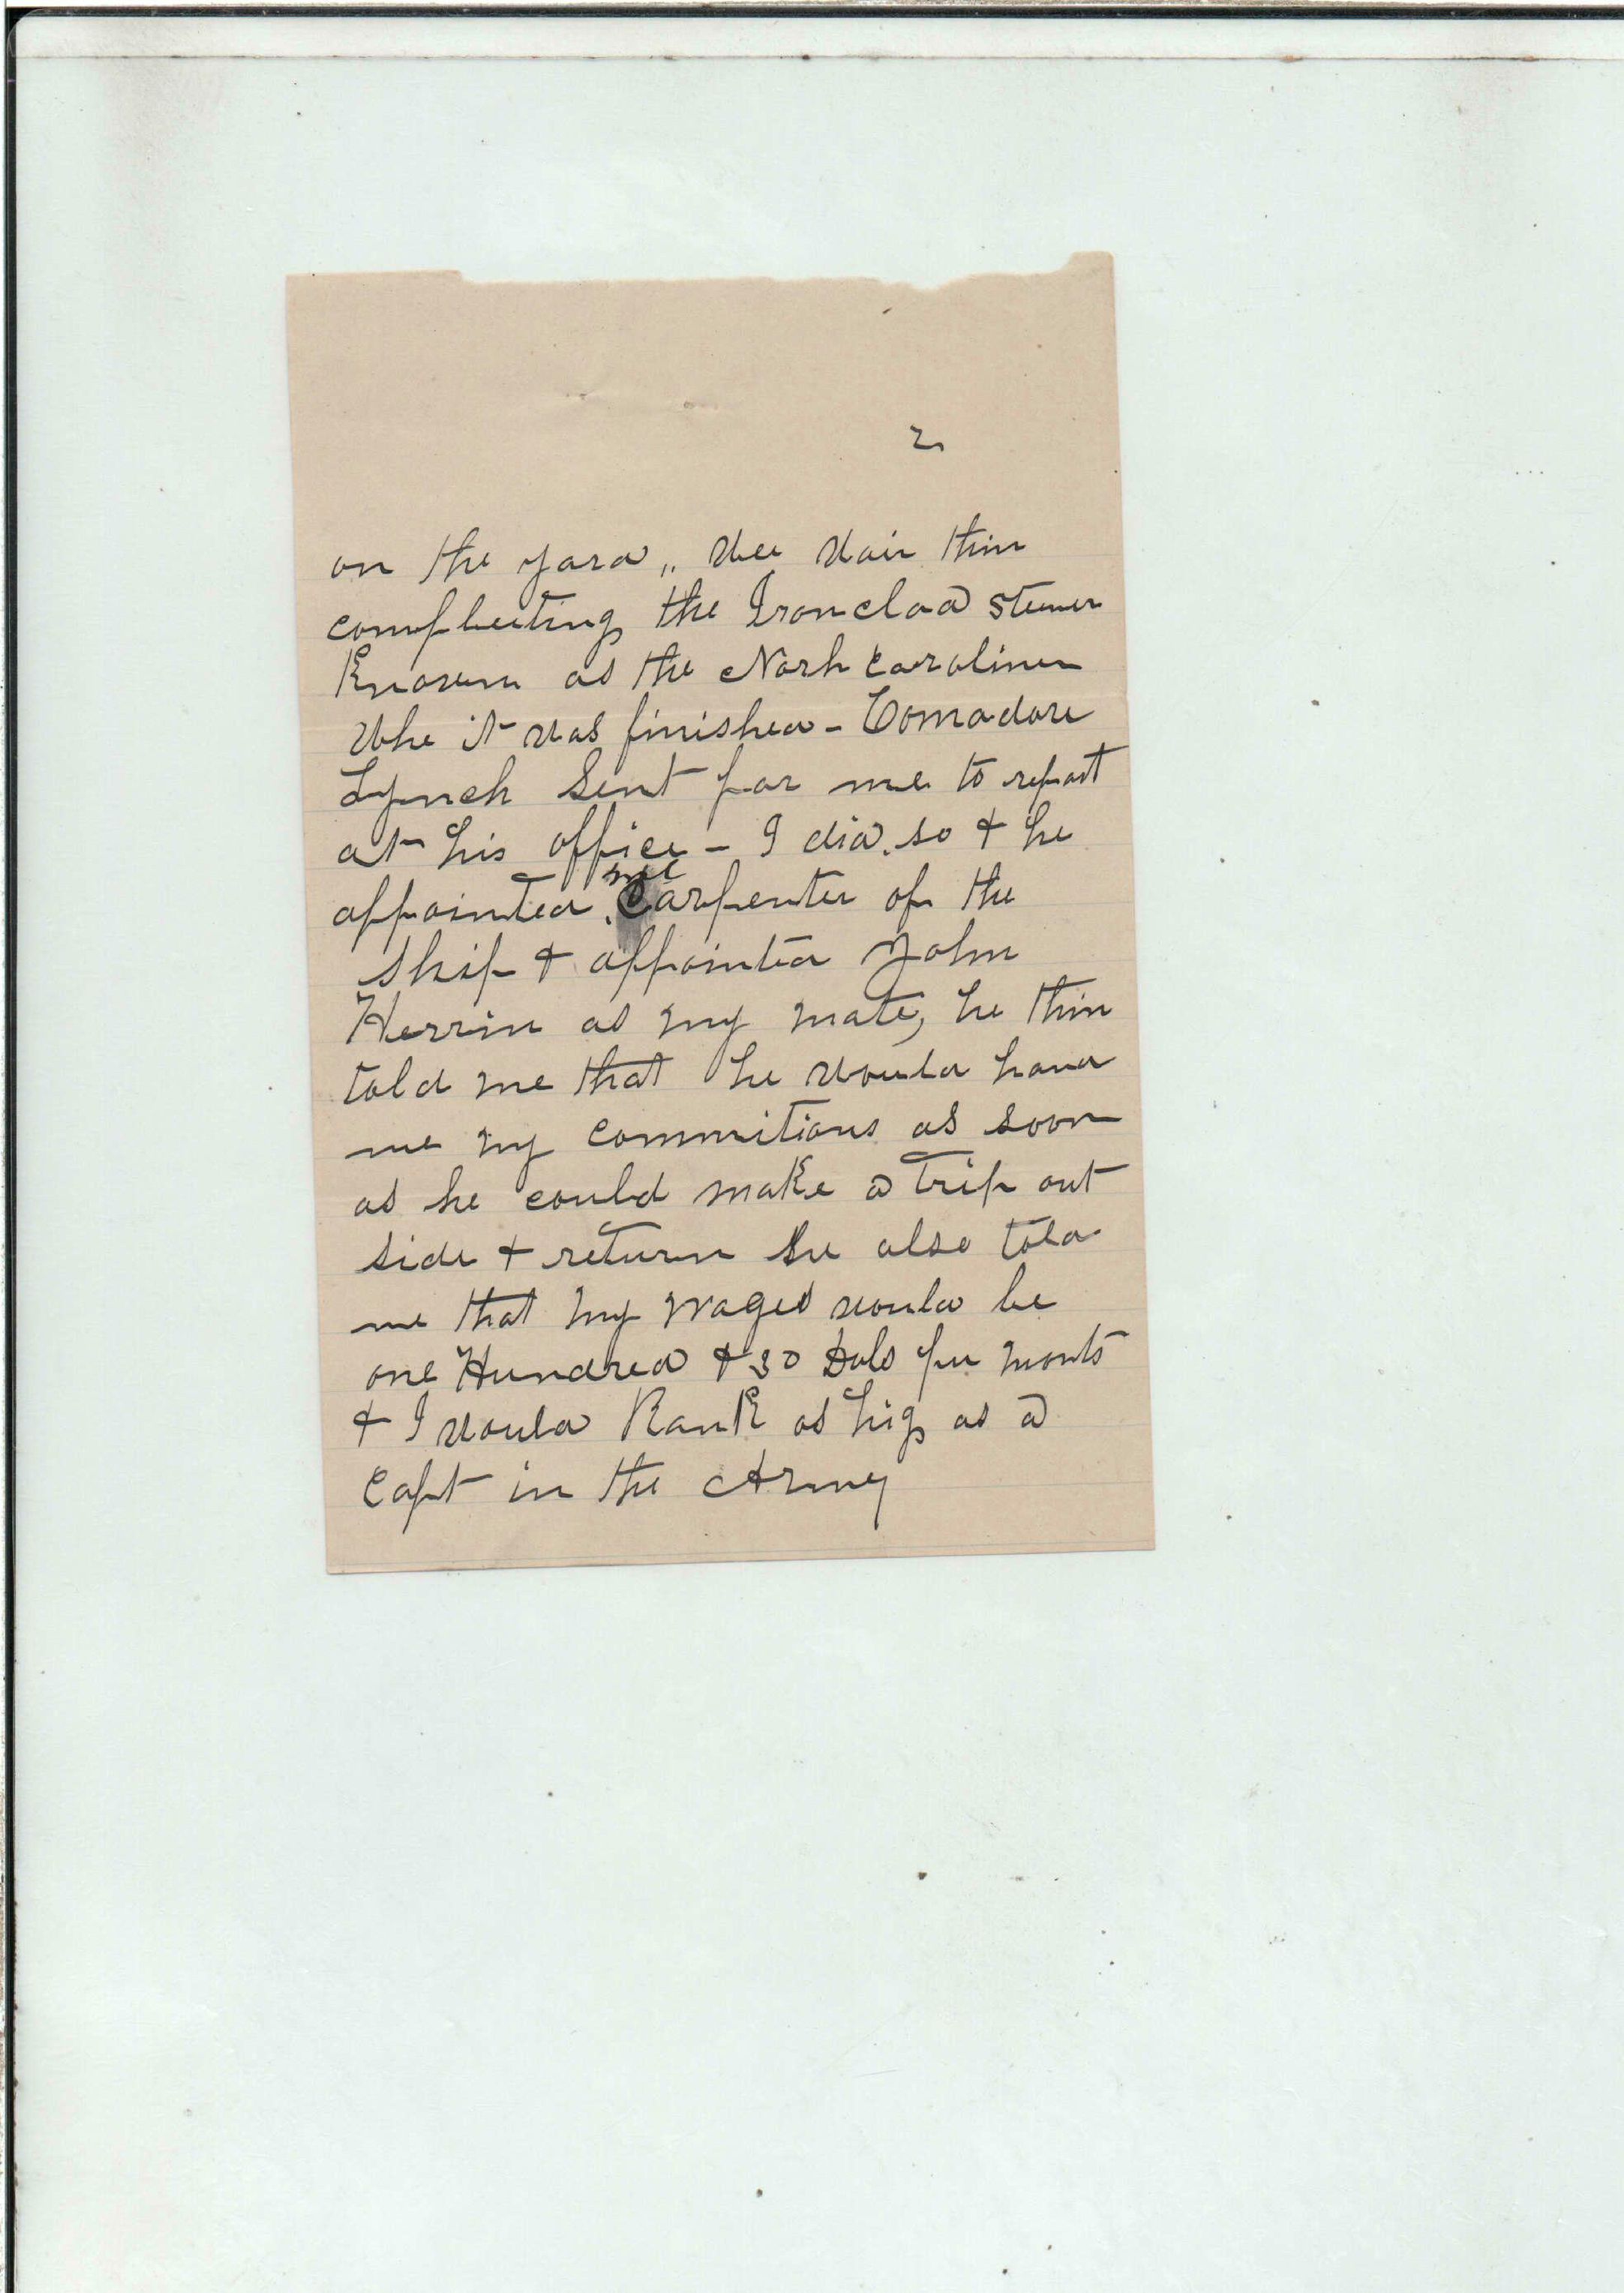 2
on the yard,, Wee Wair thin
compleeting the Ironclad steemer
Known as the Norh Caroliner
Whe it was finished - Comadore
Lynch Sent for me to report
at his office - I did. so + he
appointed me Carpenter of the
Ship + appointed John
Herrin as my mate, he thin
told me that he would hand
me my commitions as soon
as he could make a trip out
side + return he also told
me that my wages would be
one Hundred + 30 Dols per month
+ I would Rank as hig as a
Capt in the Army